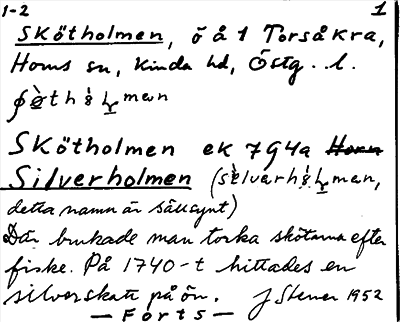 1-2 1
Skötholmen, ö å 1 Torsåkra,
Horns sn, Kinda hd, Östg. l.
Skötholmen ek 794a Horn
Silverholmen (
detta namn är sällsynt)
Där brukade man torka skötarna efter
fiske. På 1740-t hittades en
silverskatt på ön. J Stener 1952
— Forts —